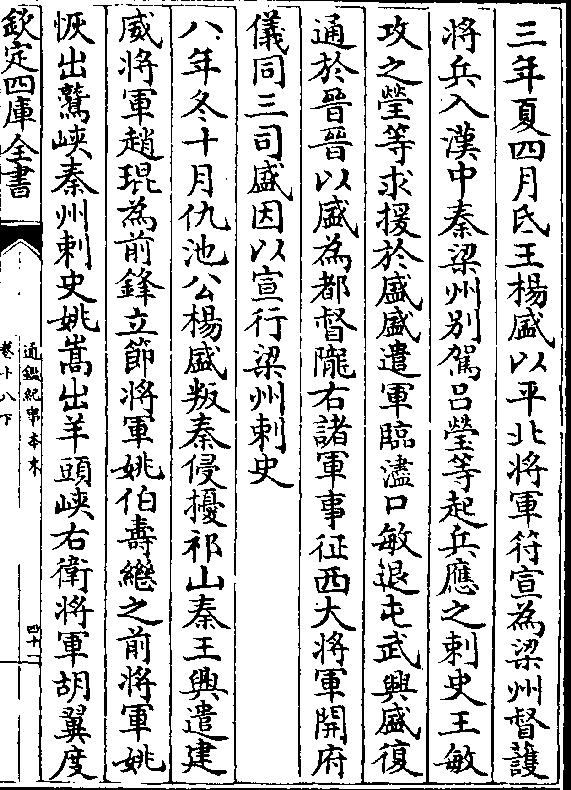 三年夏四月氐王楊盛以平北將軍符宣為梁州督護
將兵入漢中秦梁州別駕呂瑩等起兵應之刺史王敏
攻之瑩等求援於盛盛遣軍臨濜口敏退屯武興盛復
通於晉晉以盛為都督隴右諸軍事征西大將軍開府
儀同三司盛因以宣行梁州刺史
八年冬十月仇池公楊盛叛秦侵擾祁山秦王興遣建
威將軍趙琨為前鋒立節將軍姚伯壽繼之前將軍姚
恢出鷲峽秦州刺史姚嵩出羊頭峽右衛將軍胡翼度
欽定四庫全書
通鑑紀事本末
卷十八下
四十二